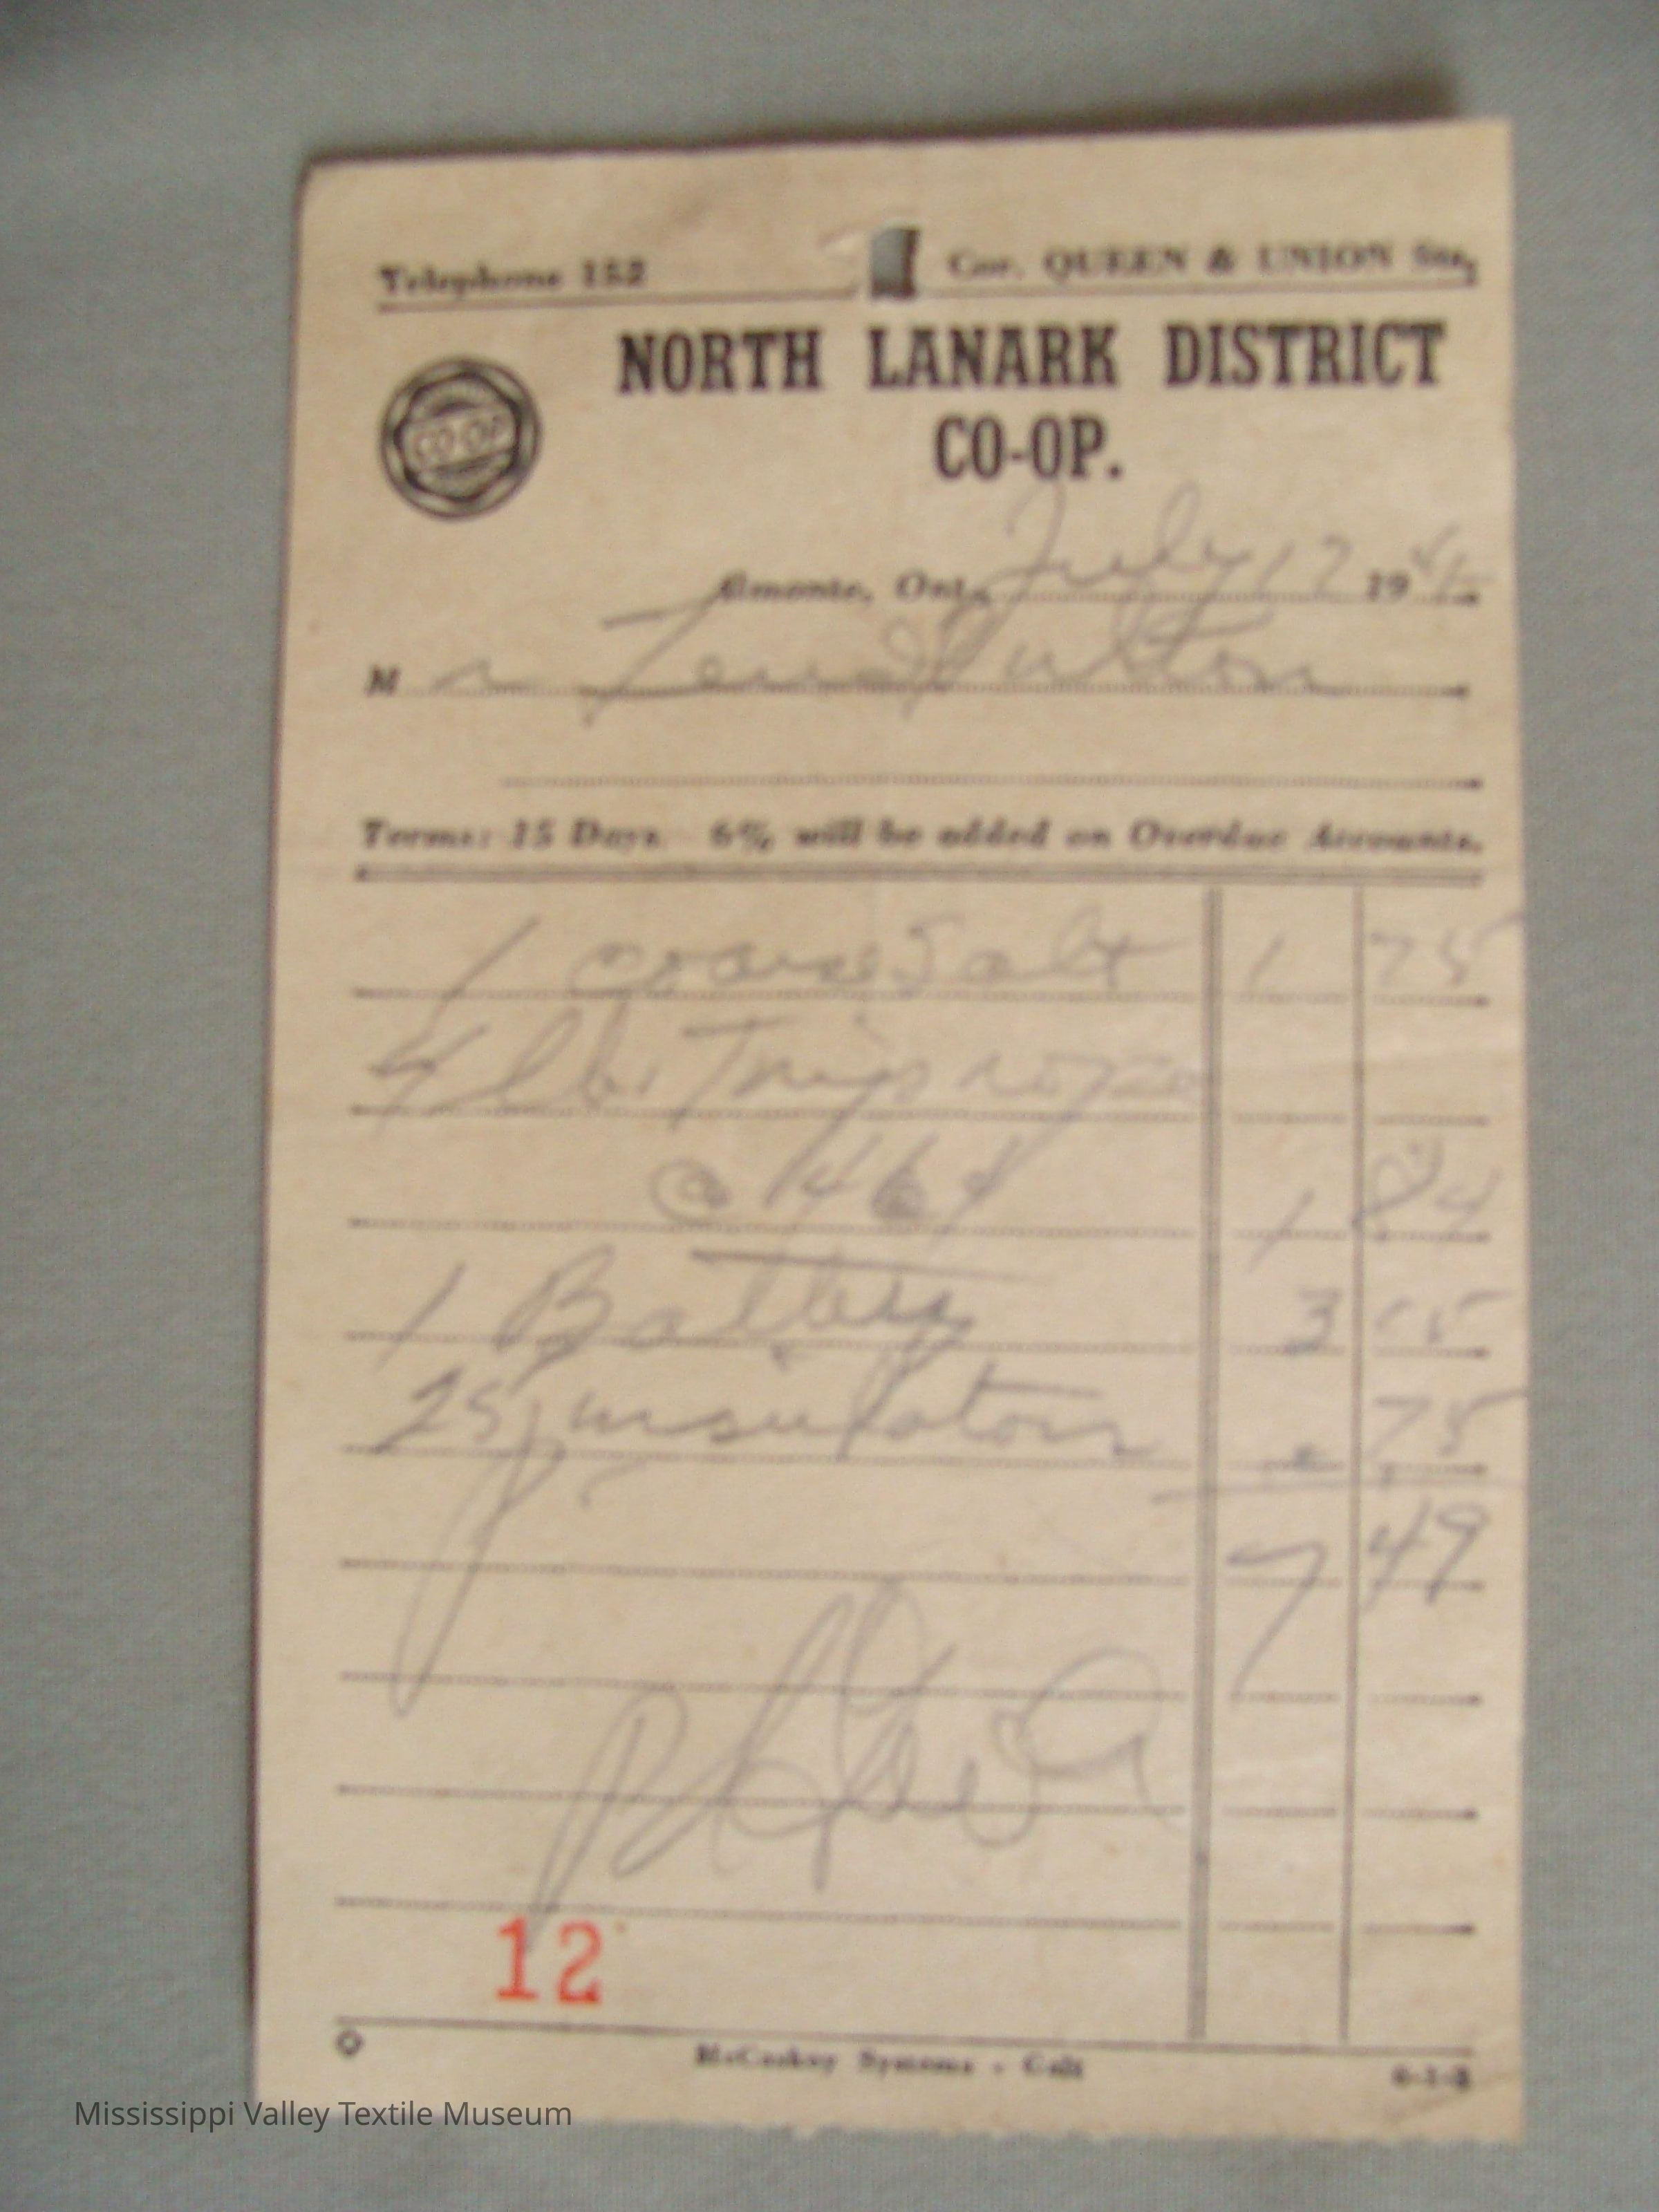 Telephone 152 Cor. QUEEN & UNION Sts,
NORTH LANARK DISTRICT
CO-OP.
CO-OP
Almonte, Ont., July 17 19
Mr
Terms: 15 Days 6% will be added on Overdue Accounts.
1 coarse Salt 1 75
4 lb. Trip rope
@ 46¢ 1 84
1 Battery 3 15
25 insulators 75
7 49
12
McCaskey Systems - Galt 6-1-8
Mississippi Valley Textile Museum